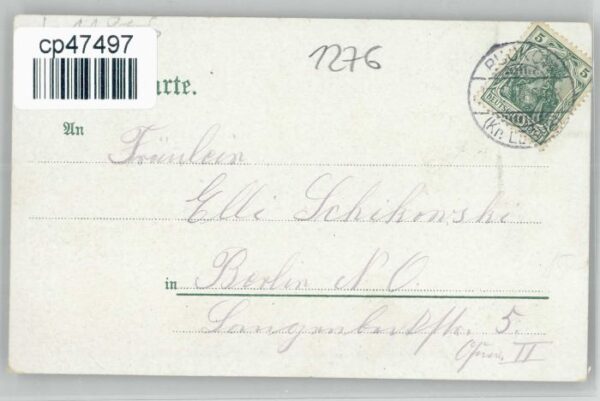 cp47497
1276
arte.
5 5
An
Fräulein
Elli Schikowski
in Berlin N.O.
Langenbeckstr. 5.
II